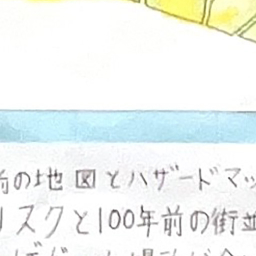 前の地図とハザードマッ
リスクと100年前の街並